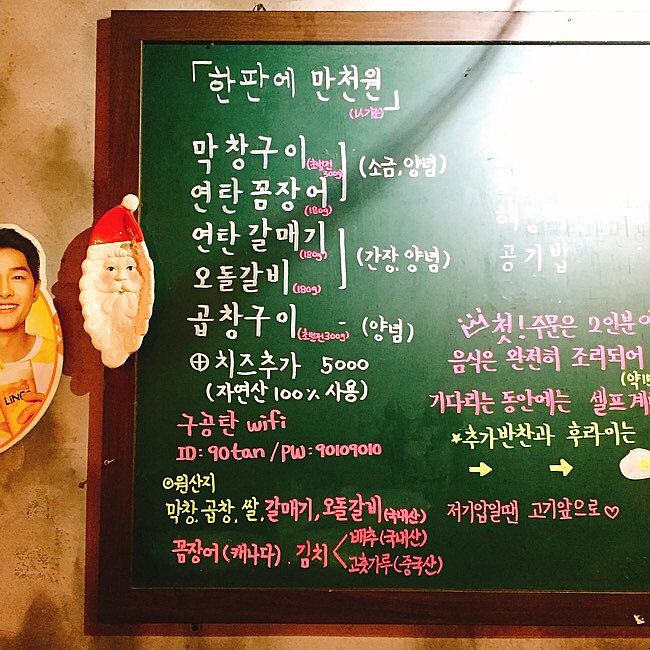 「한판에 만천원」
(1人기준)
막창구이(초벌전 300g)
연탄 꼼장어(180g)
(소금, 양념)
연탄 갈매기(180g)
오돌갈비(180g)
(간장, 양념)
곱창구이(초벌전300g) - (양념)
⊕치즈추가 5000
(자연산 100% 사용)
구공탄 wifi
ID: 90tan / PW: 90109010
⊙원산지
막창, 곱창, 쌀, 갈매기, 오돌갈비(국내산)
꼼장어(캐나다). 김치<배추(국내산)
고춧가루(중국산)
공기밥
첫! 주문은 2인분
음식은 완전히 조리되어
기다리는 동안에는 셀프
*추가반찬과 후라이는
→ →
저기압일땐 고기앞으로♡
LiNG